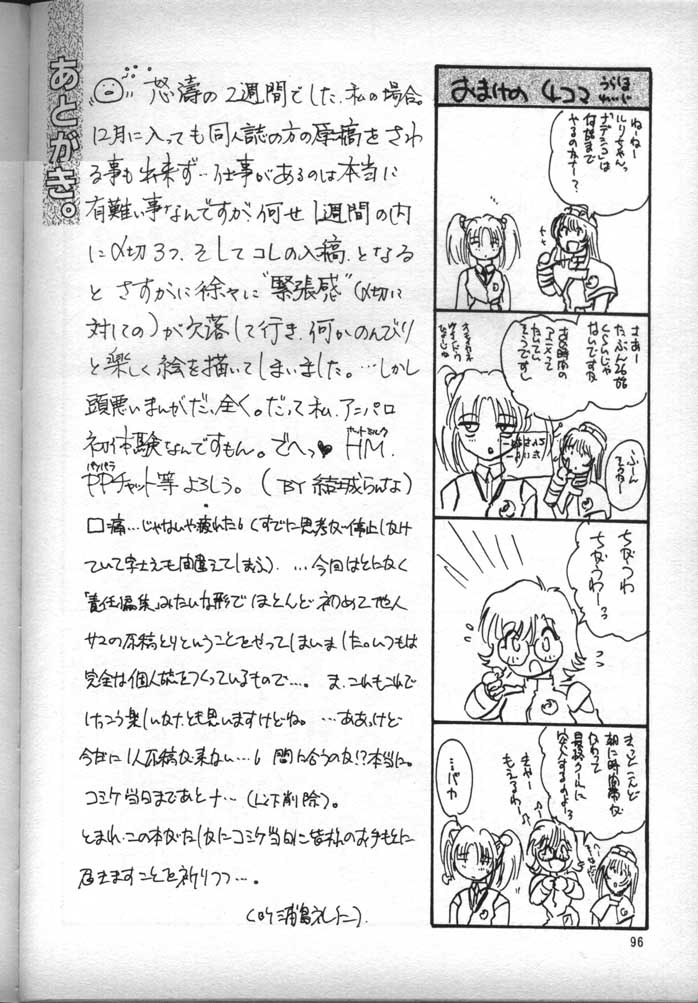 あとがき。
怒濤の2週間でした、私の場合。
12月に入っても同人誌の方の原稿をさわ
る事も出来ず…仕事があるのは本当に
有難い事なんですが、何せ1週間の内
に〆切3つ、そしてコレの入稿、となる
と さすがに徐々に"緊張感"(〆切に
対しての)が欠落して行き、何かのんびり
と楽しく絵を描いてしまいました。…しかし
頭悪いまんがだ、全く。だって私、アニパロ
初体験なんですもん。でへっ♥ HM、
PPチャット等よろしう。(BY 結城らんな)
口痛…じゃないや疲れた。(すでに思考が停止しかけ
ていて字さえも間違えてしまふ)。…今回はとにかく
「責任編集」みたいな形でほとんど初めて他人
サマの原稿とりということをやってしまいました。いつもは
完全な個人誌をつくっているもので…。ま、これもこれで
けっこう楽しいかとも思いますけどね。…ああっけど
今だに1人原稿が来ない…。間に合うのか!?本当に。
コミケ当日まであと十…(以下削除)。
ともあれ、この本がたしかにコミケ当日に皆様のお手もとに
届きますことを祈りつつ…。
おまけの 4コマ
ねーねー
ルリちゃんっ
ナデシコは
何話まで
やるのかなー?
さあー
たぶん26話
くらいじゃ
ないですか
アニメって
たいてい
そうですし
ふーん
ちがうわ
ちがうわーっ
きっとこんど
朝に時間帯が
かわって
最終クールに
突入するのよっ
きゃー
もえるわー
…バカ
96